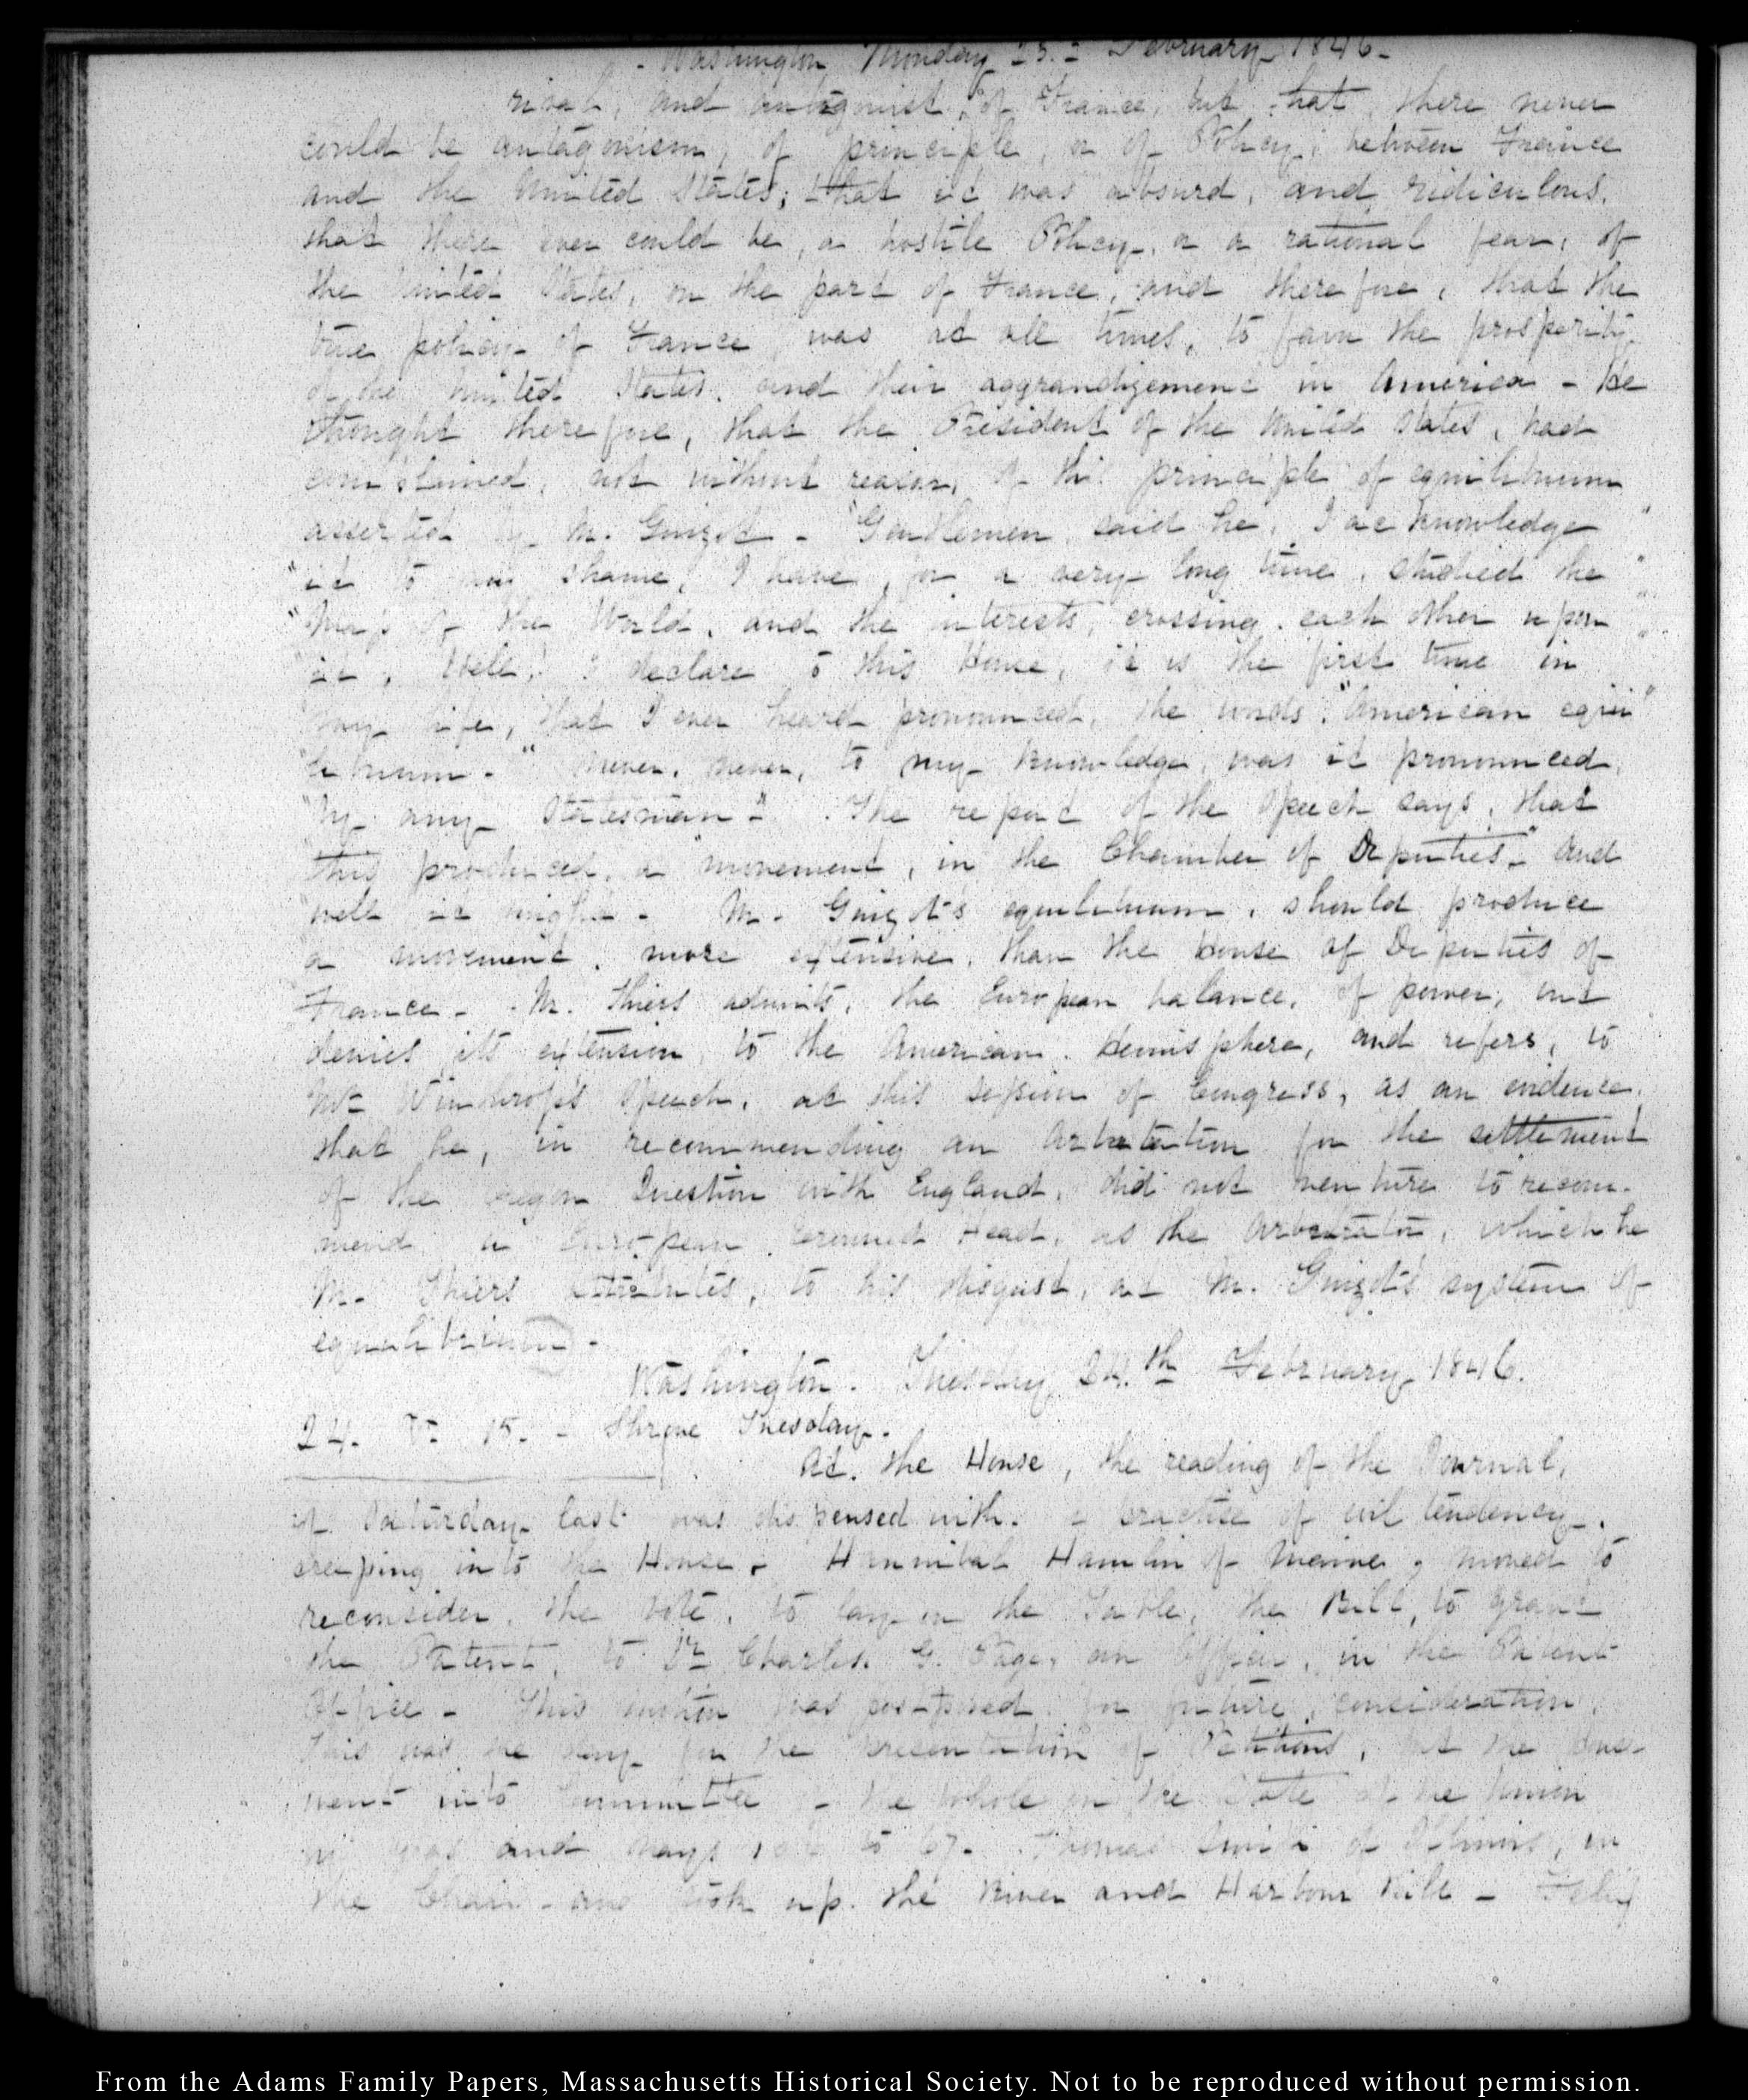 Washington Monday 23.d February 1846-
rival, and antagonist, of France, but that, there never
could be antagonism, of principle, or of Policy, between France
and the United States; that it was absurd, and ridiculous,
that there ever could be, a hostile Policy, or a rational fear, of
the United States, on the part of France, and therefore, that the
true policy of France, was at all times, to favour the prosperity
of the United States, and their aggrandizement in America - He
thought therefore, that the President of the United States, had
complained, not without reason, of this principle of equilibrium
asserted by M. Guizot - "Gentlemen, said he, I acknowledge"
"it to my shame, I have, for a very long time, studied the"
"Map of the World, and the interests, crossing each other upon"
"it, Well, I declare to this House, it is the first time in
"my life, that I ever heard pronounced, the words, "American equi"
"librium." never, never, to my knowledge, was it pronounced,
"by any Statesman." The report of the Speech says, that
this produced, a "movement, in the Chamber of Deputies," and
well it might - M. Guizot's equilibrium, should produce
a movement, more extensive, than the House of Deputies of
France - M. Thiers admits, the European balance, of power, but
denies its extension, to the American Hemisphere, and refers, to
Mr Winthrop's Speech, at this session of Congress, as an evidence,
that he, in recommending an Arbitration for the settlement
of the Oregon Question with England, did not venture to recom-
mend a European Crowned Head, as the Arbitrator, which he
M. Thiers attributes, to his disgust, at M. Guizot's system of
equilibrium -
Washington. Tuesday 24.th February 1846.
24. V: 15. - Shrove Tuesday.
At. the House, the reading of the Journal,
of Saturday last was dispensed with. a practice of evil tendency,
creeping into the House - Hannibal Hamlin of Maine, moved to
reconsider, the vote, to lay on the Table, the Bill, to grant
the Patent, to Dr Charles G. Page, an Officer, in the Patent
Office - This motion was postponed for future, consideration,
This was the day for the presentation of Petitions, but the House
went into Committee of the whole on the State of the Union
by yeas and nays to 67. Thomas Smith of Illinois, in
the Chair - and took up. the River and Harbour Bill -